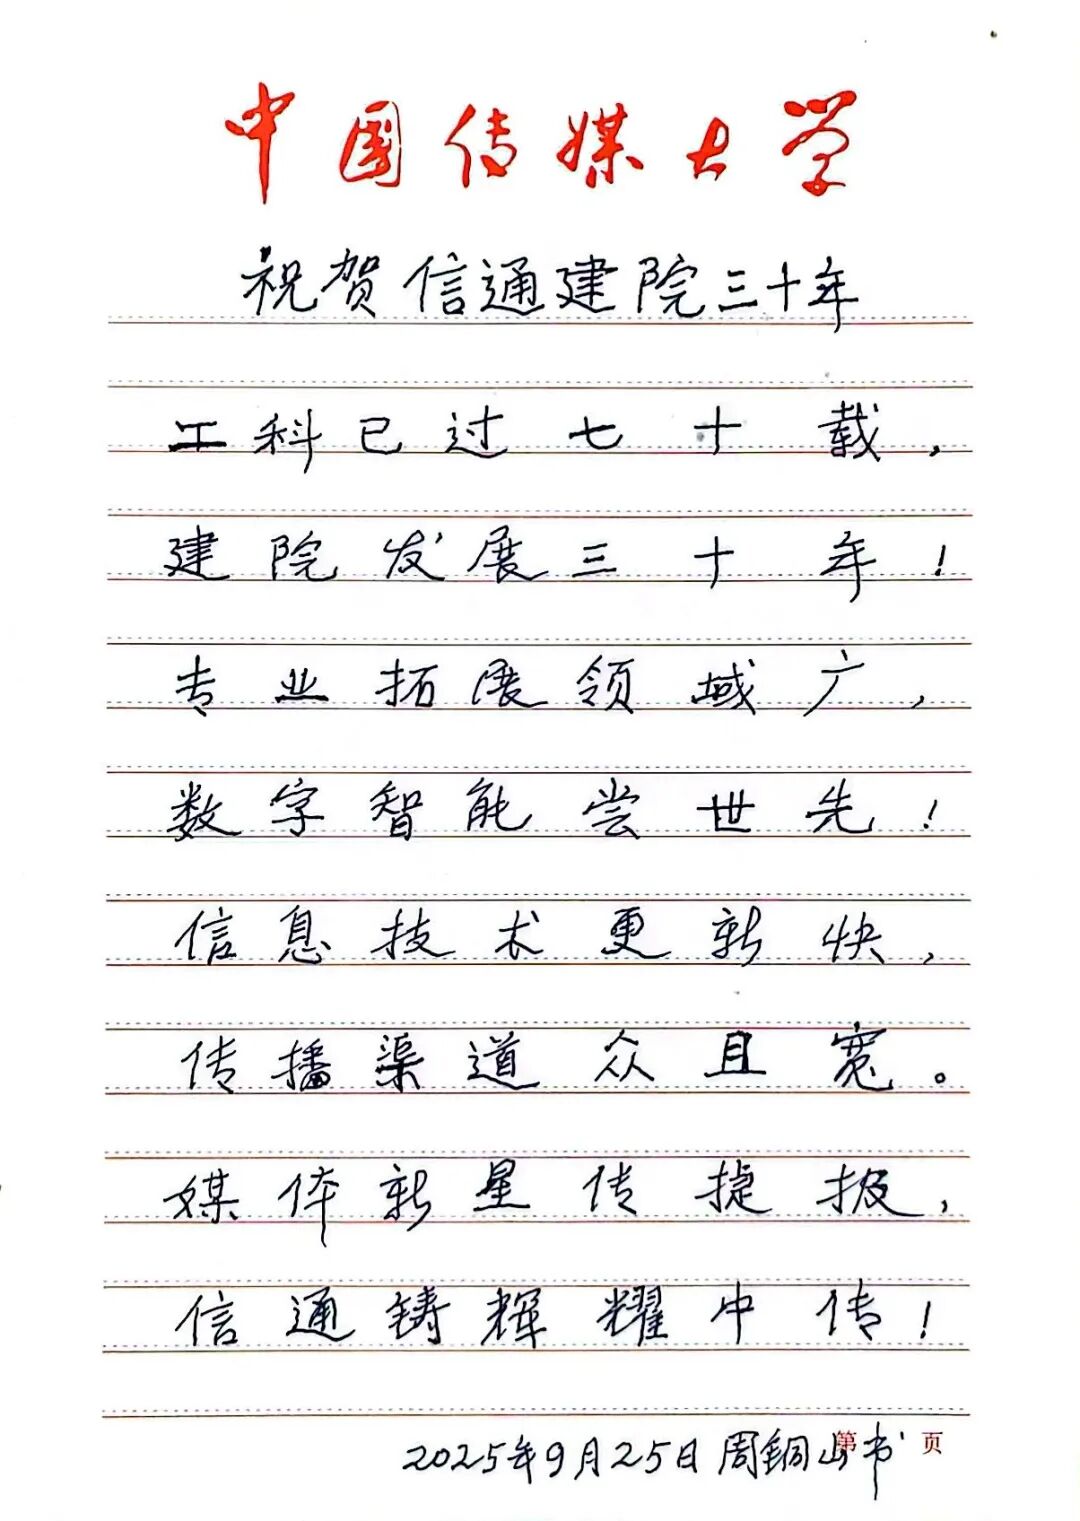 中国传媒大学
祝贺信通建院三十年
工科已过七十载，
建院发展三十年！
专业拓展领域广，
数字智能尝世先！
信息技术更新快，
传播渠道众且宽。
媒体新星传捷报，
信通铸辉耀中传！
2025年9月25日周铜山书
第 页